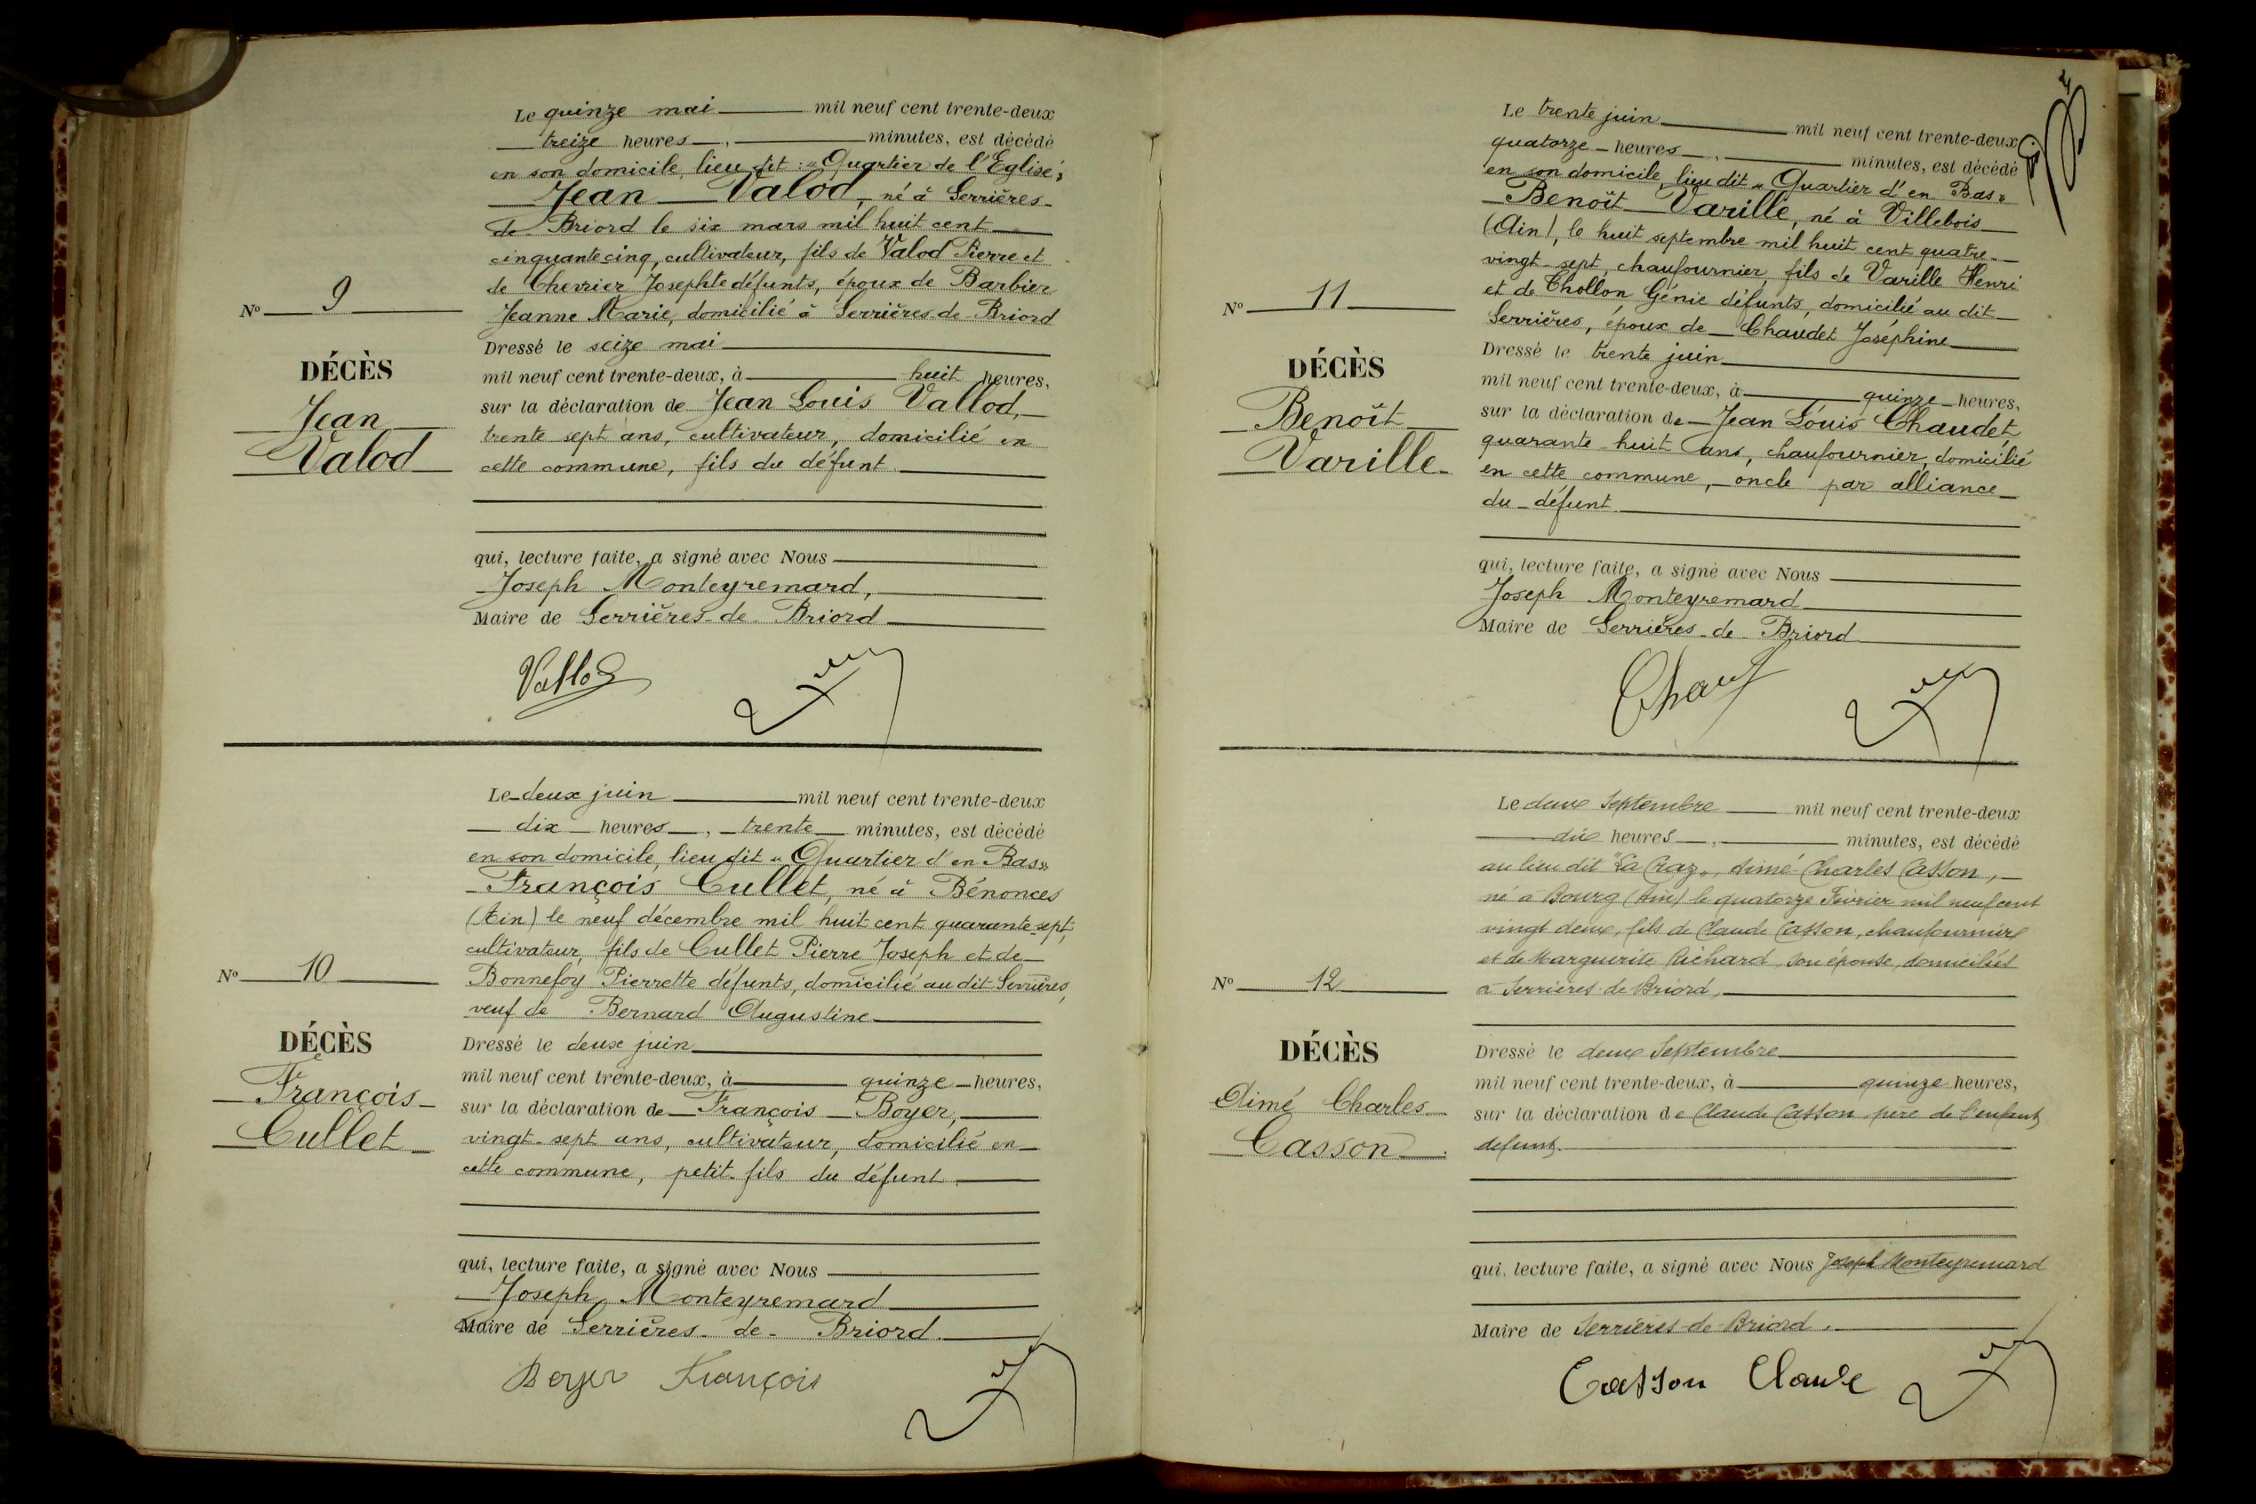 Le quinze mai mil neuf cent trente-deux
treize heures, minutes, est décédé
en son domicile, lieu dit : "Quartier de l'Eglise",
Jean Valod, né à Serrières-
de Briord le six mars mil huit cent
cinquante cinq, cultivateur, fils de Valod Pierre et
de Chevrier Josephte défunts, époux de Barbier
Jeanne Marie, domicilié à Serrières-de-Briord
Nº 9
DÉCÈS
Jean
Valod
Dressé le seize mai
mil neuf cent trente-deux, à huit heures,
sur la déclaration de Jean Louis Vallod,
trente sept ans, cultivateur, domicilié en
cette commune, fils du défunt.
qui, lecture faite, a signé avec Nous
Joseph Monteyremard,
Maire de Serrières-de-Briord
Vallod
Le deux juin mil neuf cent trente-deux
dix heures, trente minutes, est décédé
en son domicile, lieu dit "Quartier d'en Bas"
François Cullet, né à Bénonces
(Ain) le neuf décembre mil huit cent quarante-sept,
cultivateur, fils de Cullet Pierre Joseph et de
Bonnefoy Pierrette défunts, domicilié au dit Serrières,
veuf de Bernard Augustine
Nº 10
DÉCÈS
François
Cullet
Dressé le deux juin
mil neuf cent trente-deux, à quinze heures,
sur la déclaration de François Boyer,
vingt-sept ans, cultivateur, domicilié en
cette commune, petit-fils du défunt.
qui, lecture faite, a signé avec Nous
Joseph Monteyremard
Maire de Serrières-de-Briord.
Boyer François
Le trente juin mil neuf cent trente-deux
quatorze heures, minutes, est décédé
en son domicile, lieu dit "Quartier d'en Bas"
Benoît Varille, né à Villebois
(Ain), le huit septembre mil huit cent quatre-
vingt-sept, chaufournier, fils de Varille Henri
et de Chollon Génie défunts, domicilié au dit
Serrières, époux de Chaudet Joséphine
Nº 11
DÉCÈS
Benoît
Varille
Dressé le trente juin
mil neuf cent trente-deux, à quinze heures,
sur la déclaration de Jean Louis Chaudet,
quarante-huit ans, chaufournier, domicilié
en cette commune, oncle par alliance
du défunt.
qui, lecture faite, a signé avec Nous
Joseph Monteyremard
Maire de Serrières-de-Briord
Le deux Septembre mil neuf cent trente-deux
dix heures, minutes, est décédé
au lieu dit "La Craz", Aimé Charles Casson,
né à Bourg (Ain) le quatorze Février mil neuf cent
vingt deux, fils de Claude Casson, chaufournier
et de Marguerite Richard, son épouse, domiciliés
à Serrières-de-Briord,
Nº 12
DÉCÈS
Aimé Charles
Casson
Dressé le deux Septembre
mil neuf cent trente-deux, à quinze heures,
sur la déclaration de Claude Casson père de l'enfant
défunt.
qui, lecture faite, a signé avec Nous Joseph Monteyremard
Maire de Serrières-de-Briord.
Casson Claude